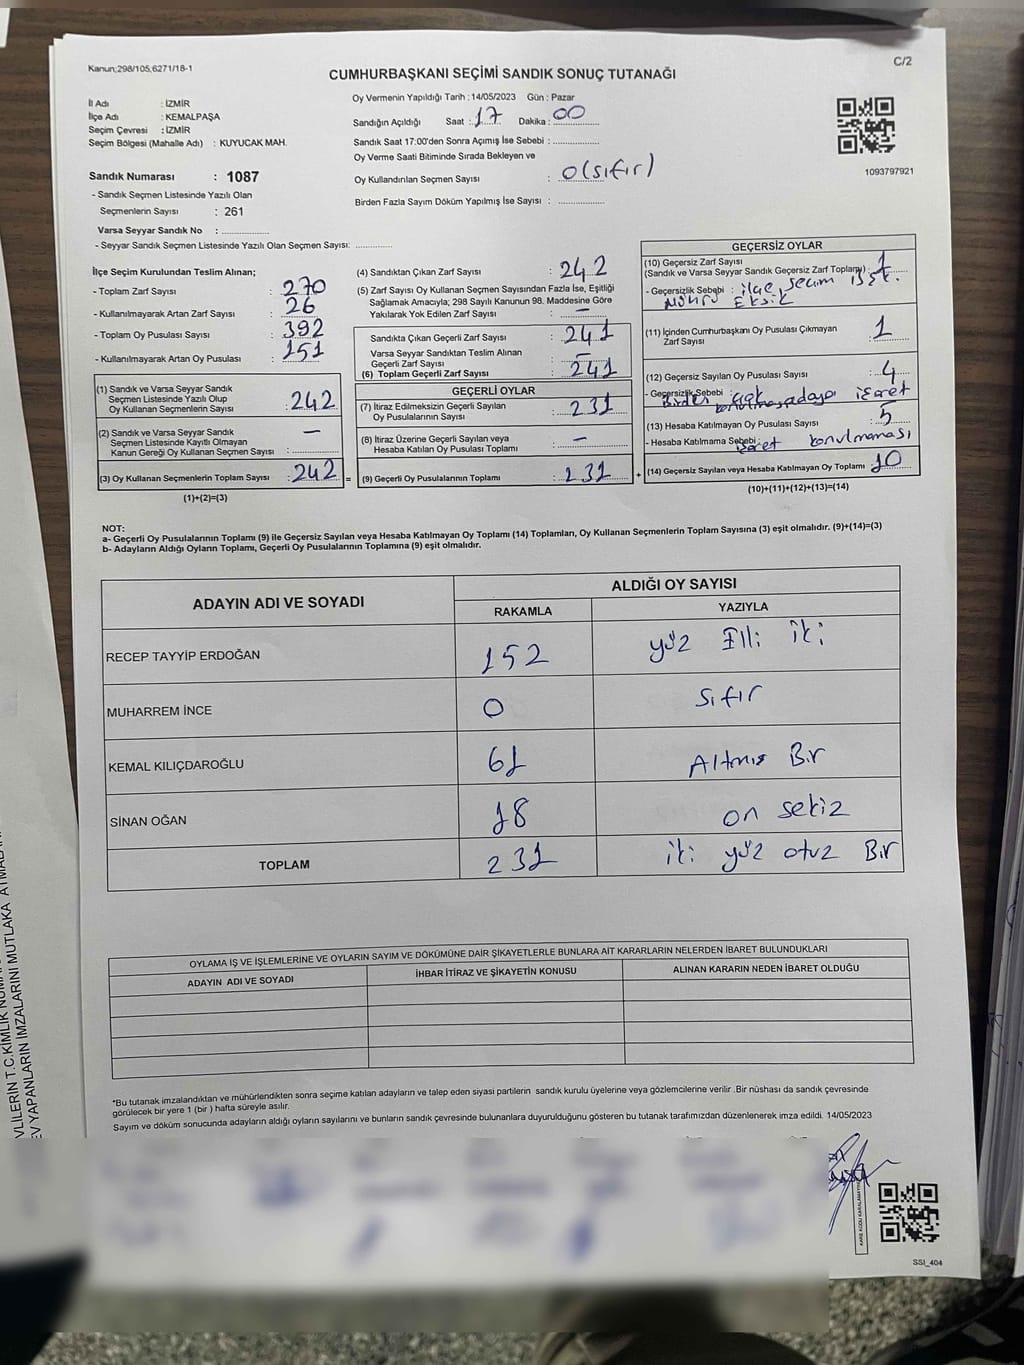 Kanun;298/105,6271/18-1
C/2
CUMHURBAŞKANI SEÇİMİ SANDIK SONUÇ TUTANAĞI
İl Adı : İZMİR
İlçe Adı : KEMALPAŞA
Seçim Çevresi : İZMİR
Seçim Bölgesi (Mahalle Adı) : KUYUCAK MAH.
Sandık Numarası : 1087
- Sandık Seçmen Listesinde Yazılı Olan
Seçmenlerin Sayısı : 261
Varsa Seyyar Sandık No : ...............
- Seyyar Sandık Seçmen Listesinde Yazılı Olan Seçmen Sayısı: ............
Oy Vermenin Yapıldığı Tarih : 14/05/2023 Gün : Pazar
Sandığın Açıldığı Saat : 17 Dakika : 00
Sandık Saat 17:00'den Sonra Açımış İse Sebebi : ...............
Oy Verme Saati Bitiminde Sırada Bekleyen ve
Oy Kullandırılan Seçmen Sayısı : 0 (sıfır)
Birden Fazla Sayım Döküm Yapılmış İse Sayısı : ...............
1093797921
İlçe Seçim Kurulundan Teslim Alınan;
- Toplam Zarf Sayısı : 270
- Kullanılmayarak Artan Zarf Sayısı : 26
- Toplam Oy Pusulası Sayısı : 392
- Kullanılmayarak Artan Oy Pusulası : 151
(1) Sandık ve Varsa Seyyar Sandık
Seçmen Listesinde Yazılı Olup
Oy Kullanan Seçmenlerin Sayısı : 242
(2) Sandık ve Varsa Seyyar Sandık
Seçmen Listesinde Kayıtlı Olmayan
Kanun Gereği Oy Kullanan Seçmen Sayısı : —
(3) Oy Kullanan Seçmenlerin Toplam Sayısı : 242 =
(1)+(2)=(3)
(4) Sandıktan Çıkan Zarf Sayısı : 242
(5) Zarf Sayısı Oy Kullanan Seçmen Sayısından Fazla İse, Eşitliği
Sağlamak Amacıyla; 298 Sayılı Kanunun 98. Maddesine Göre
Yakılarak Yok Edilen Zarf Sayısı : —
Sandıkta Çıkan Geçerli Zarf Sayısı : 241
Varsa Seyyar Sandıktan Teslim Alınan
Geçerli Zarf Sayısı : —
(6) Toplam Geçerli Zarf Sayısı : 241
GEÇERLİ OYLAR
(7) İtiraz Edilmeksizin Geçerli Sayılan
Oy Pusulalarının Sayısı : 231
(8) İtiraz Üzerine Geçerli Sayılan veya
Hesaba Katılan Oy Pusulası Toplamı : —
(9) Geçerli Oy Pusulalarının Toplamı : 231 +
GEÇERSİZ OYLAR
(10) Geçersiz Zarf Sayısı
(Sandık ve Varsa Seyyar Sandık Geçersiz Zarf Toplamı) : 1
- Geçersizlik Sebebi : ilçe seçim Bşk.
Mührü Eksik
(11) İçinden Cumhurbaşkanı Oy Pusulası Çıkmayan
Zarf Sayısı : 1
(12) Geçersiz Sayılan Oy Pusulası Sayısı : 4
- Geçersizlik Sebebi : Birden çok adaya işaret
konulması
(13) Hesaba Katılmayan Oy Pusulası Sayısı : 5
- Hesaba Katılmama Sebebi : işaret konulmaması
(14) Geçersiz Sayılan veya Hesaba Katılmayan Oy Toplamı 10
(10)+(11)+(12)+(13)=(14)
NOT:
a- Geçerli Oy Pusulasının Toplamı (9) ile Geçersiz Sayılan veya Hesaba Katılmayan Oy Toplamı (14) Toplamları, Oy Kullanan Seçmenlerin Toplam Sayısına (3) eşit olmalıdır. (9)+(14)=(3)
b- Adayların Aldığı Oyların Toplamı, Geçerli Oy Pusulalarının Toplamına (9) eşit olmalıdır.
ADAYIN ADI VE SOYADI ALDIĞI OY SAYISI
RAKAMLA YAZIYLA
RECEP TAYYİP ERDOĞAN 152 yüz Elli iki
MUHARREM İNCE 0 sıfır
KEMAL KILIÇDAROĞLU 61 Altmış Bir
SİNAN OĞAN 18 on sekiz
TOPLAM 231 iki yüz otuz Bir
OYLAMA İŞ VE İŞLEMLERİNE VE OYLARIN SAYIM VE DÖKÜMÜNE DAİR ŞİKAYETLERLE BUNLARA AİT KARARLARIN NELERDEN İBARET BULUNDUKLARI
ADAYIN ADI VE SOYADI İHBAR İTİRAZ VE ŞİKAYETİN KONUSU ALINAN KARARIN NEDEN İBARET OLDUĞU
*Bu tutanak imzalandıktan ve mühürlendikten sonra seçime katılan adayların ve talep eden siyasi partilerin sandık kurulu üyelerine veya gözlemcilerine verilir .Bir nüshası da sandık çevresinde
görülecek bir yere 1 (bir ) hafta süreyle asılır.
Sayım ve döküm sonucunda adayların aldığı oyların sayılarını ve bunların sandık çevresinde bulunanlara duyurulduğunu gösteren bu tutanak tarafımızdan düzenlenerek imza edildi. 14/05/2023
KARE KODU KARALAMAYINIZ
SSI_404